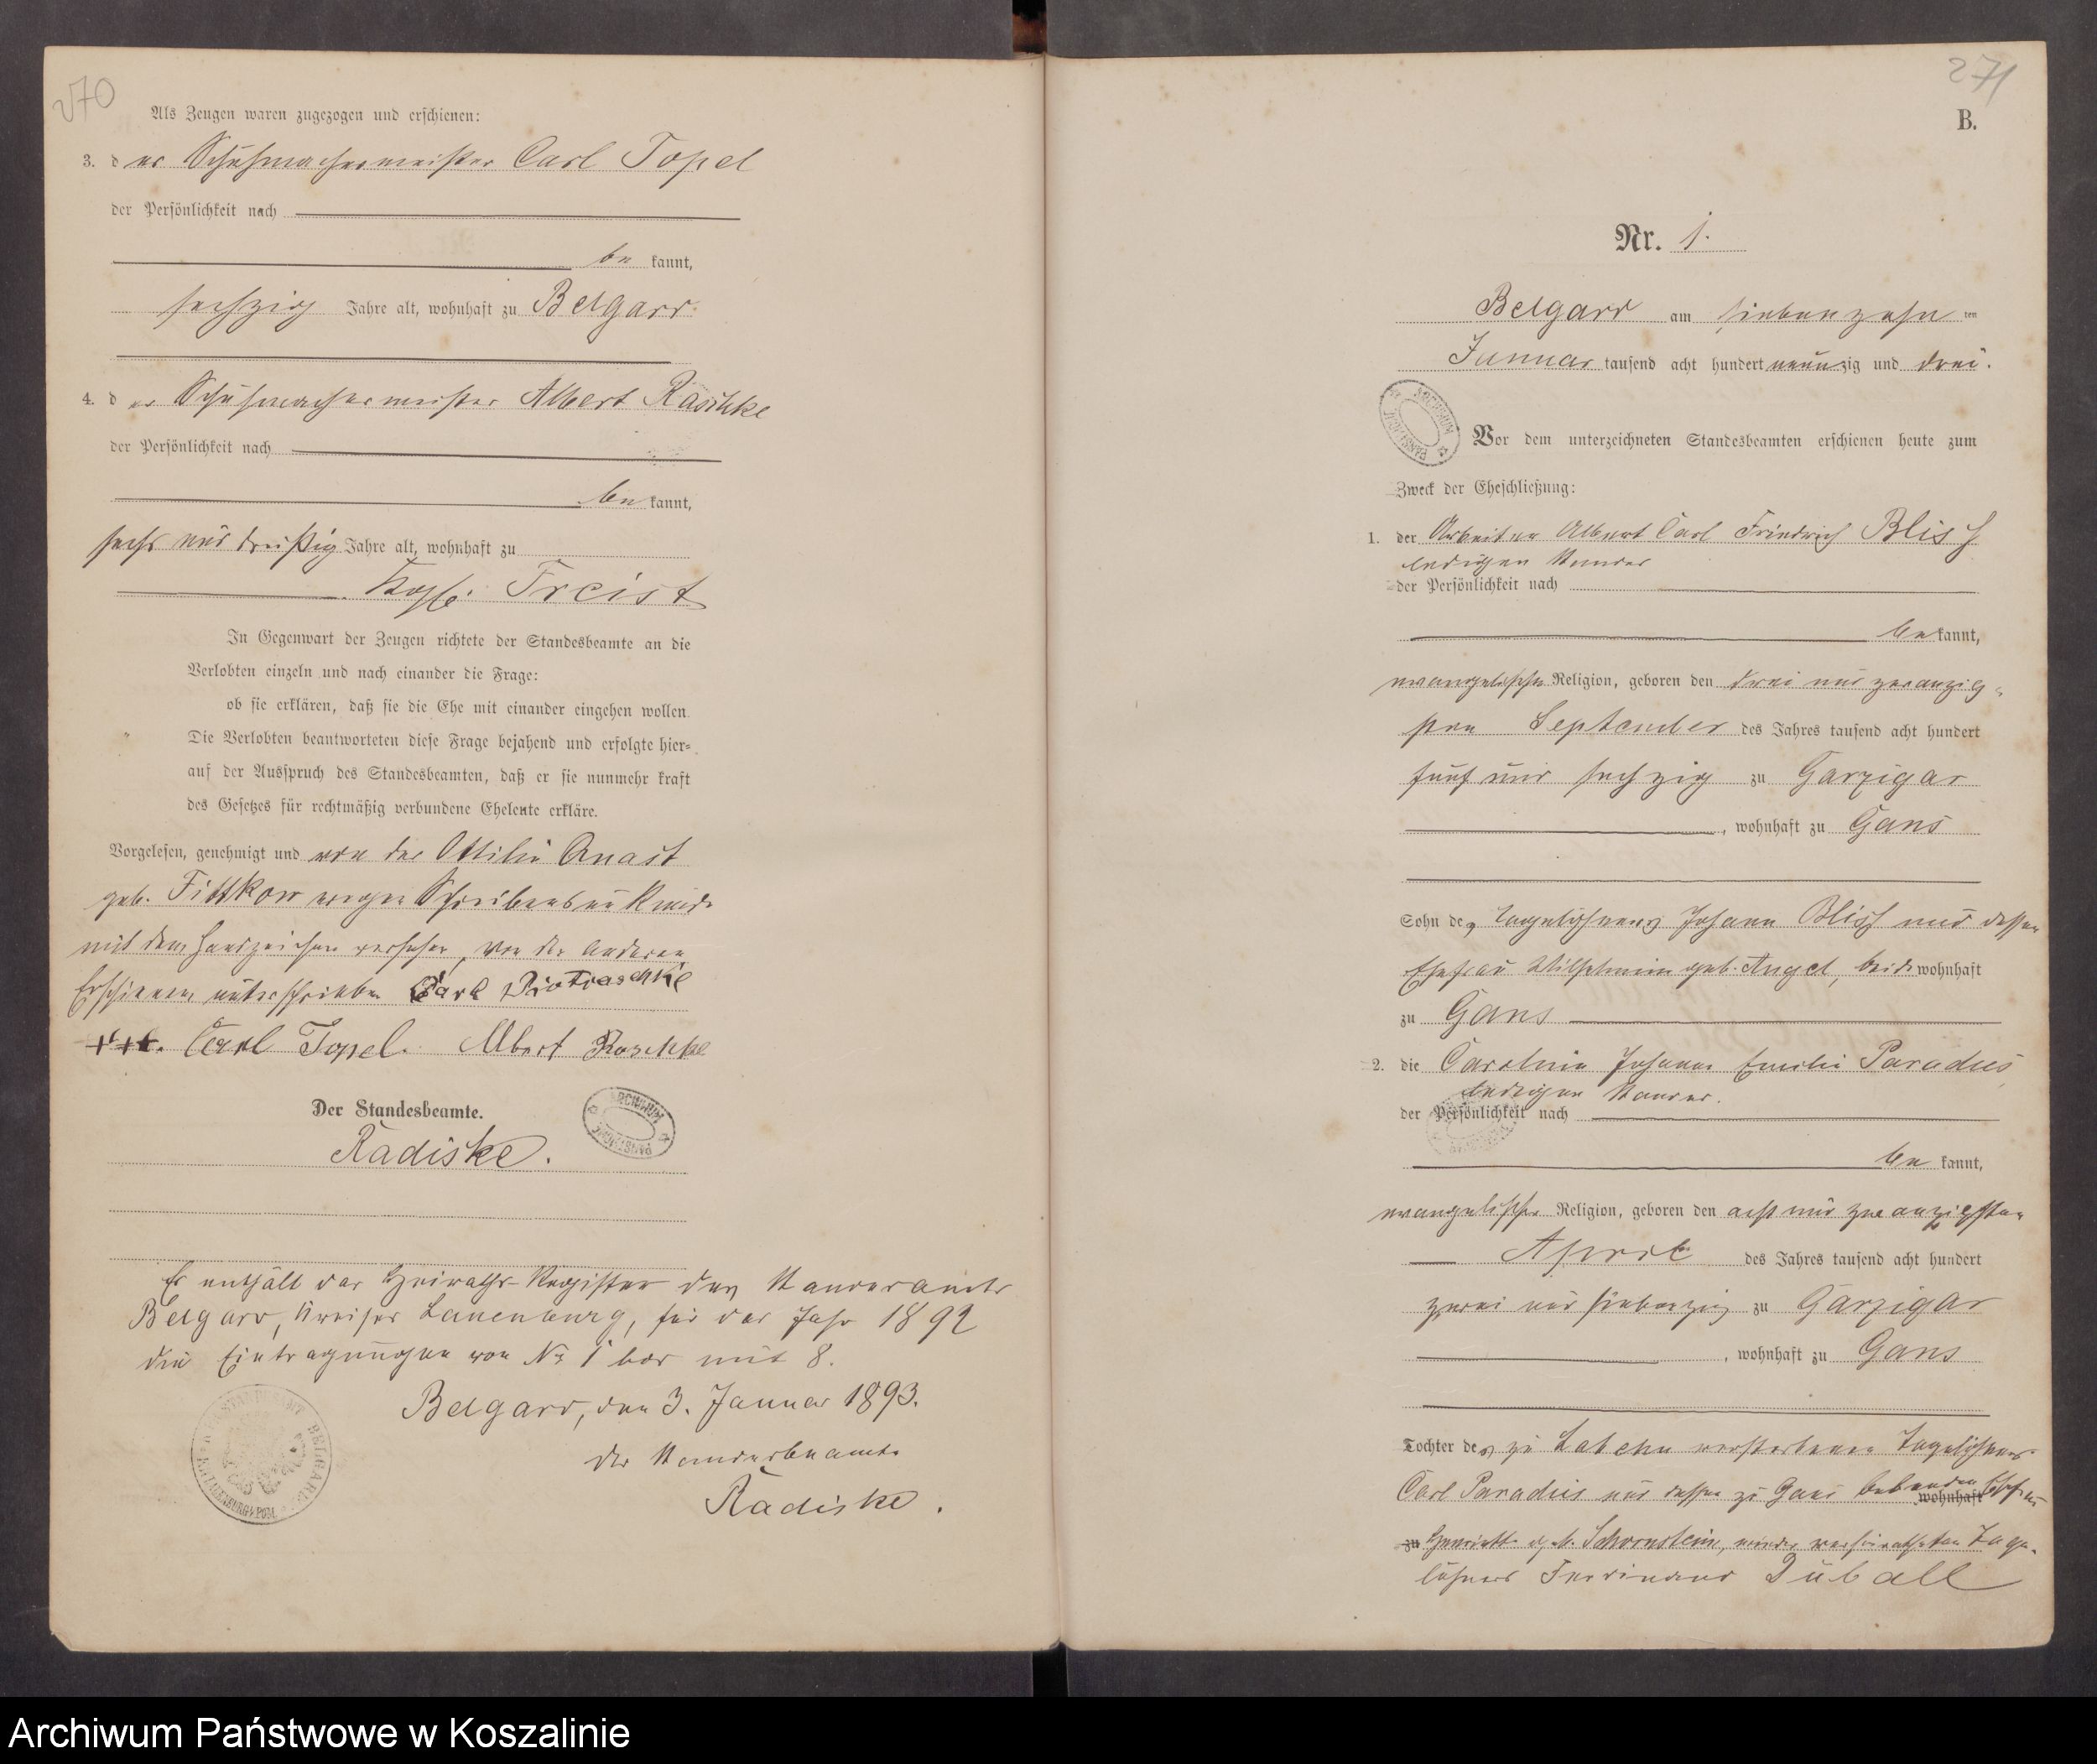 270
Als Zeugen waren zugezogen und erschienen:
3. der Schuhmachermeister Carl Topel
der Persönlichkeit nach
be kannt,
sechzig Jahre alt, wohnhaft zu Belgard
4. der Schuhmachermeister Albert Raschke
der Persönlichkeit nach
be kannt,
sechs und dreißig Jahre alt, wohnhaft zu
Freist
In Gegenwart der Zeugen richtete der Standesbeamte an die
Verlobten einzeln und nach einander die Frage:
ob sie erklären, daß sie die Ehe mit einander eingehen wollen.
Die Verlobten beantworteten diese Frage bejahend und erfolgte hier-
auf der Ausspruch des Standesbeamten, daß er sie nunmehr kraft
des Gesetzes für rechtmäßig verbundene Eheleute erkläre.
Vorgelesen, genehmigt und von der Ottilie Quast
geb. Fittkow wegen Schreibensunkunde
mit dem Handzeichen versehen, von den anderen
Erschienenen unterschrieben Carl Piotraschke
+++. Carl Topel. Albert Raschke
Der Standesbeamte.
Radiske.
ARCHIWUM PAŃSTWOWE
Es enthält das Heiraths-Register des Standesamts
Belgard, Kreises Lauenburg, für das Jahr 1892
die Eintragungen von No 1 bis mit 8.
Belgard, den 3. Januar 1893.
Der Standesbeamte
Radiske.
271
B.
Nr. 1.
Belgard am siebenzehn ten
Januar tausend acht hundert neunzig und drei.
ARCHIWUM PAŃSTWOWE
Vor dem unterzeichneten Standesbeamten erschienen heute zum
Zweck der Eheschließung:
1. der Arbeiter Albert Carl Friedrich Bliss
ledigen Standes
der Persönlichkeit nach
be kannt,
evangelischer Religion, geboren den drei und zwanzig-
sten September des Jahres tausend acht hundert
fünf und sechzig zu Garzigar
, wohnhaft zu Gans
Sohn des Tagelöhners Johann Bliss und dessen
Ehefrau Wilhelmine geb. Angel, beide wohnhaft
zu Gans
2. die Caroline Johanne Emilie Paradies
ledigen Standes.
der Persönlichkeit nach
be kannt,
evangelischer Religion, geboren den acht und zwanzigsten
April des Jahres tausend acht hundert
zwei und siebenzig zu Garzigar
, wohnhaft zu Gans
Tochter des zu Labehn verstorbenen Tagelöhners
Carl Paradies und dessen zu Gans lebenden Ehefrau
wohnhaft
zu Henriette geb. Schornstein, wieder verheiratheten Tage-
löhner Ferdinand Duball
Archiwum Państwowe w Koszalinie